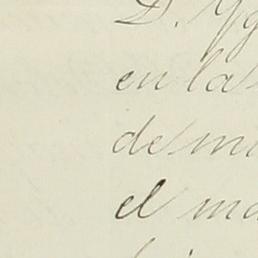 D. Yg
en la
de mi
el ma